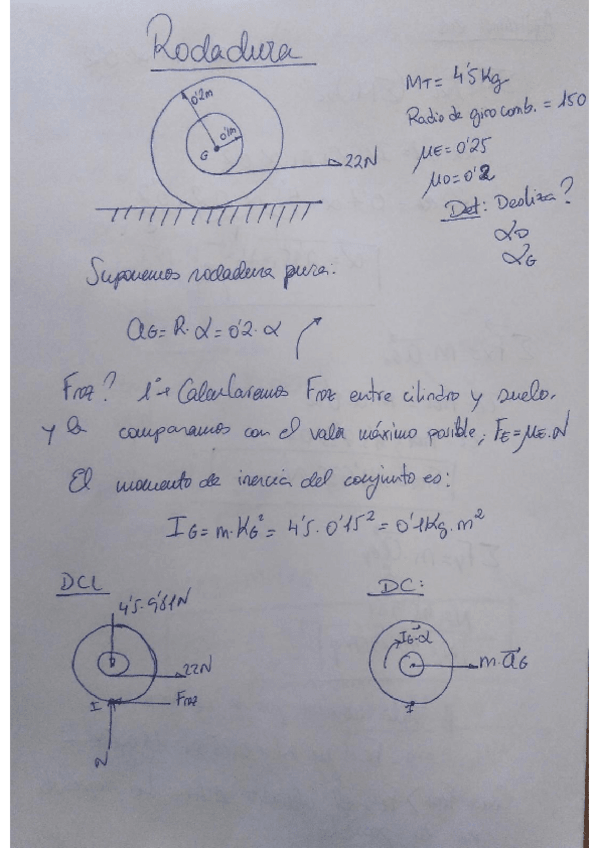 Rodadura
0'2m
0'1m
G
22N
MT= 4'5Kg
Radio de giro comb. = 150
μE=0'25
μD=0'2
Det: Desliza?
αG
Suponemos rodadura pura:
aG= R·α=0'2·α
Froz? 1º→ Calcularemos Froz entre cilindro y suelo.
y la comparamos con el valor máximo posible; FE=μE·N
El momento de inercia del conjunto es:
IG= m·KG²= 4'5·0'15²= 0'1Kg·m²
DCL
4'5·9'81N
22N
I
Froz
N
DC:
IG·α
m·aG
I